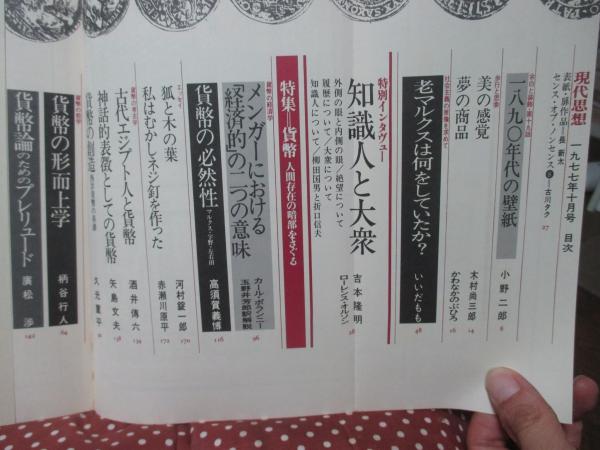 現代思想 一九七七年十月号 目次
表紙・扉作品=長 新太
センス・オブ・ノンセンス 古川タク 27
一八九〇年代の壁紙 小野二郎 8
美の感覚 木村尚三郎 14
夢の商品 かわなかのぶひろ 16
社会主義の原像を求めて
老マルクスは何をしていたか? いいだもも 48
特別インタヴュー
知識人と大衆 吉本隆明 ローレンス・オルソン 28
外側の眼と内側の眼/絶望について
履歴について/大衆について
知識人について/柳田国男と折口信夫
特集=貨幣 人間存在の暗部をさぐる
貨幣の経済学
メンガーにおける「経済的」の二つの意味 カール・ポランニー 玉野井芳郎訳解説 96
貨幣の必然性 マルクス・宇野・左右田 高須賀義博 116
エッセイ
狐と木の葉 河村錠一郎 170
私はむかしネジ釘を作った 赤瀬川原平 172
貨幣の考古学
古代エジプト人と貨幣 酒井傳六 134
神話的表徴としての貨幣 矢島文夫 138
貨幣の創造 久光重平
貨幣の哲学
貨幣の形而上学 柄谷行人 84
貨幣論のためのプレリュード 廣松 渉